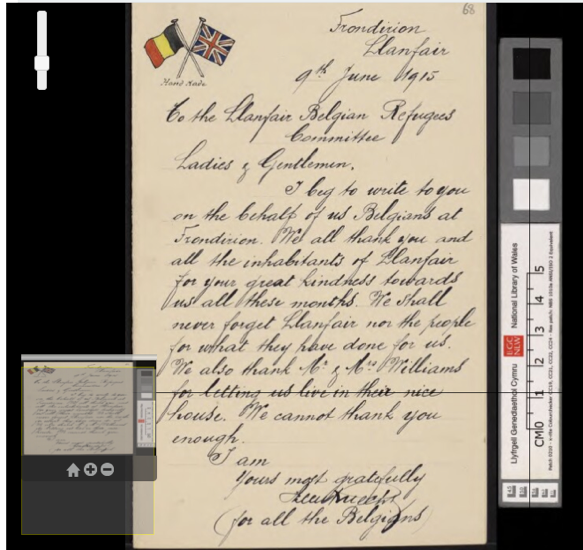 68
Frondirion
Llanfair
9th June 1915
Hand Made.
To the Llanfair Belgian Refugees
Committee
Ladies & Gentlemen,
I beg to write to you
on the behalf of us Belgians at
Frondirion. We all thank you and
all the inhabitants of Llanfair
for your great kindness towards
us all these months. We shall
never forget Llanfair nor the people
for what they have done for us.
We also thank Mr & Mrs Williams
for letting us live in their nice
house. We cannot thank you
enough.
I am
Yours most gratefully
(for all the Belgians)
Llyfrgell Genedlaethol Cymru LLGC NLW National Library of Wales
CM 0 1 2 3 4 5